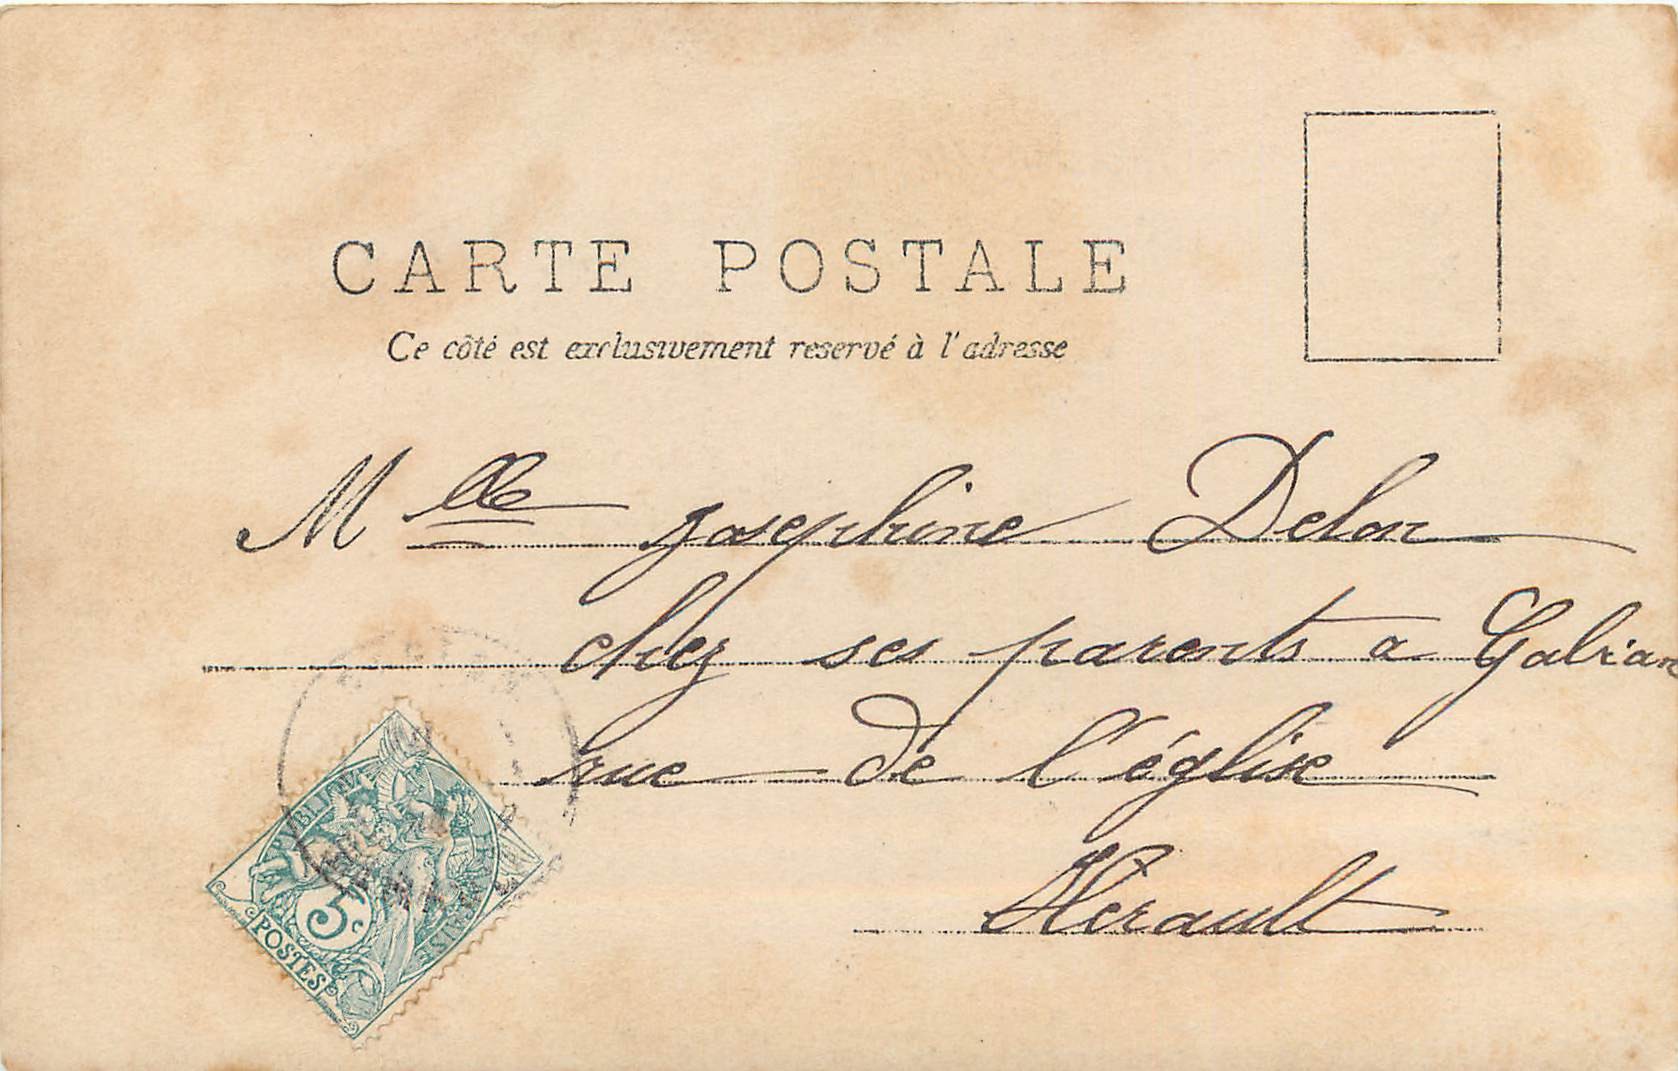 CARTE POSTALE
Ce côté est exclusivement reservé à l'adresse
Mlle Josephine Delon
chez ses parents a Gabian
rue de l'église
Herault
5c
POSTES